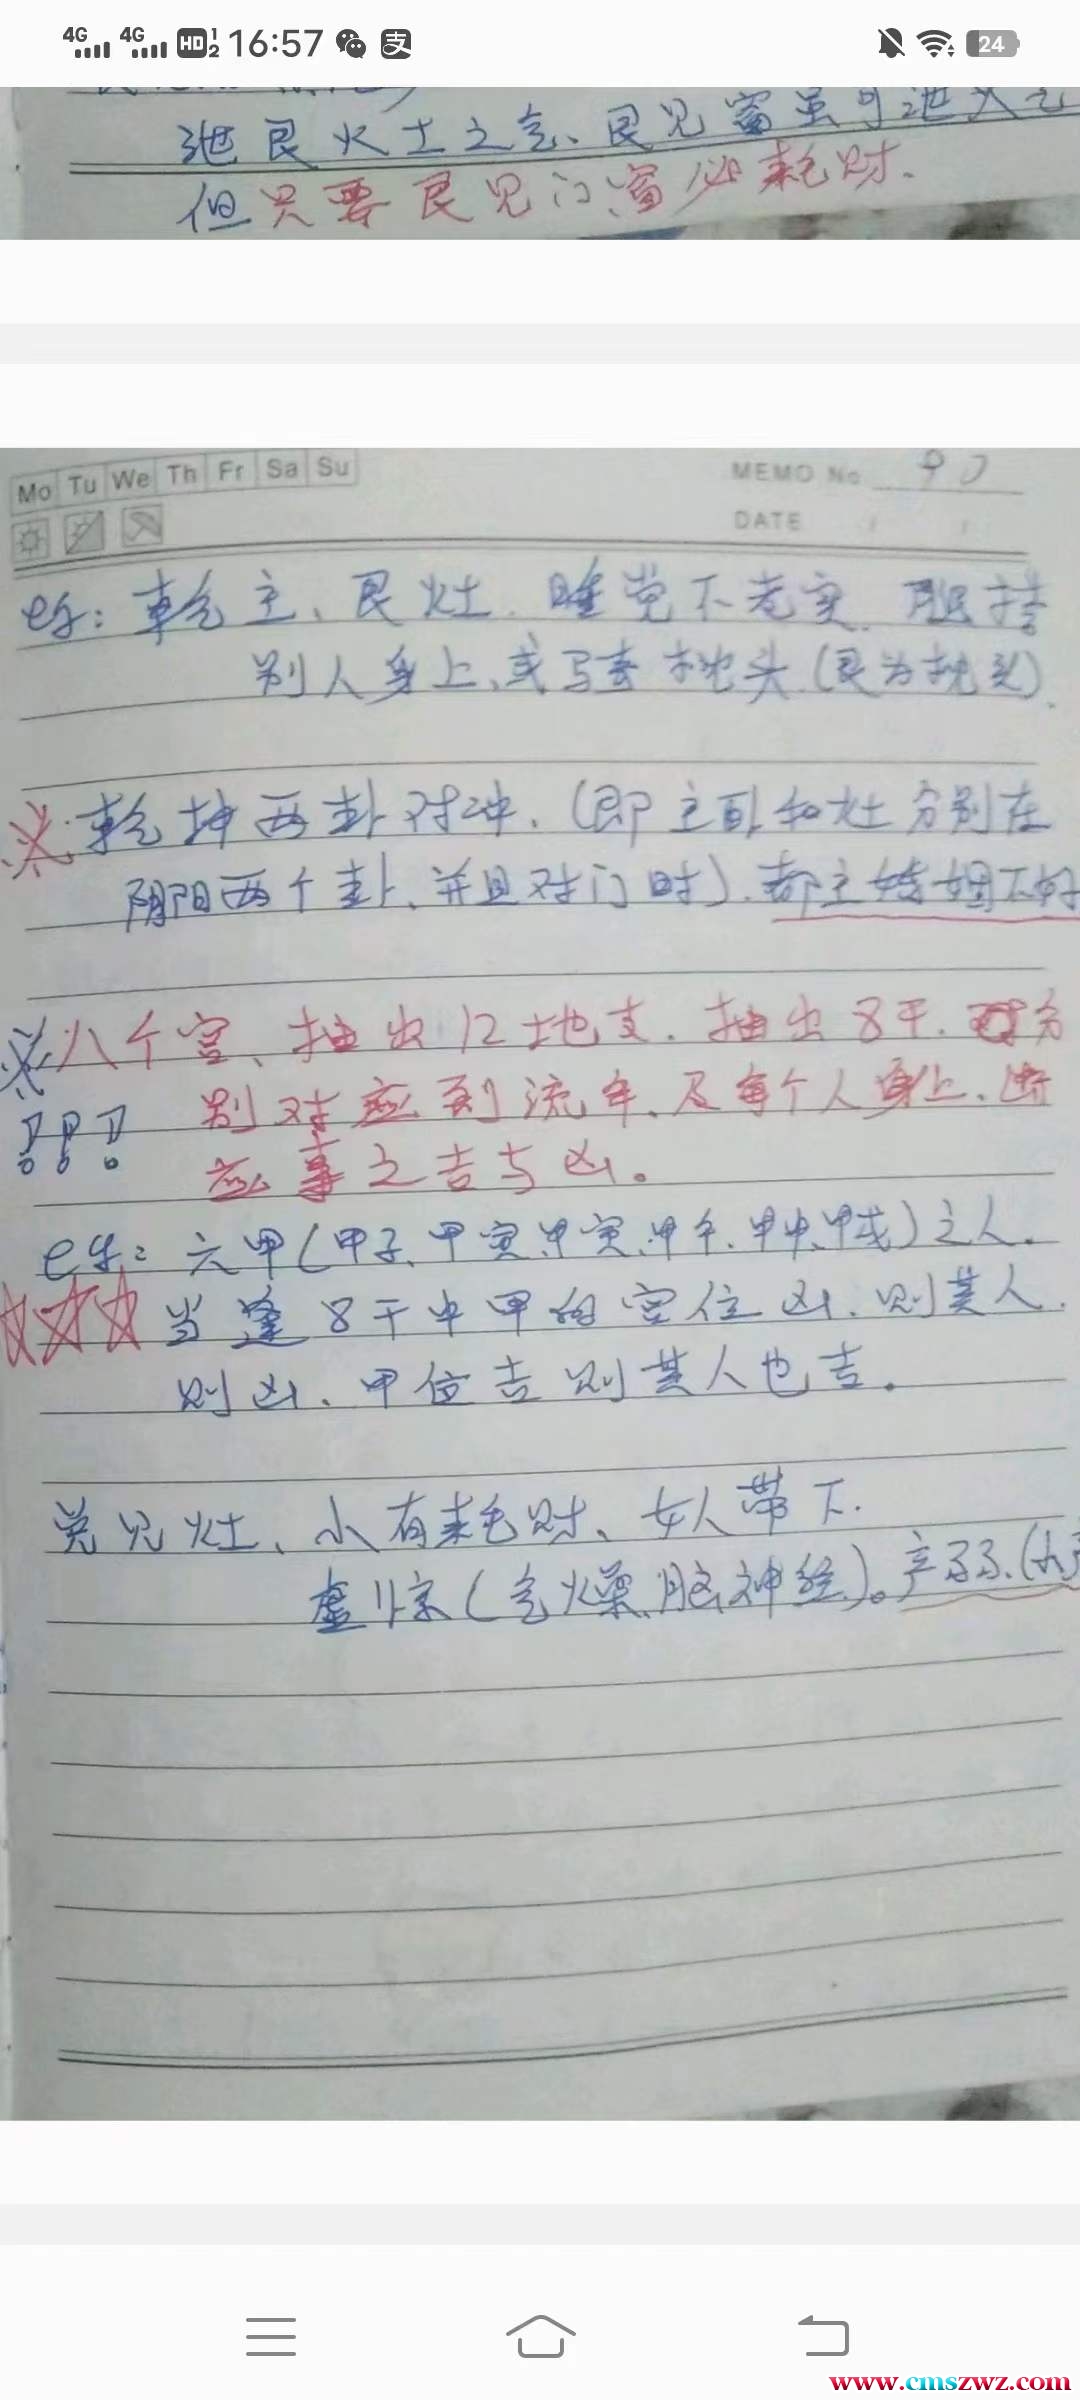 4G 4G HD 1 2 16:57 支 24
泄艮火土之气、艮见窗虽可泄火气
但只要艮见门、窗必耗财.
Mo Tu We Th Fr Sa Su
MEMO No 90
DATE / /
eg: 乾主、艮灶. 睡觉不老实. 腿搭
别人身上、或骑枕头(艮为枕头).
乾坤两卦对冲. (即主卧和灶分别在
阴阳两个卦、并且对门时). 都主婚姻不好
八个宫、抽出12地支. 抽出8干. 分
别对应到流年、及每个人身上、断
应事之吉与凶。
eg: 六甲(甲子、甲寅、甲寅、甲午、甲申、甲戌)之人.
当逢8干中甲的宫位凶、则其人
则凶、甲位吉则其人也吉。
兑见灶、小有耗财、女人带下.
虚惊(气燥、脑神经)。产弱.(小产
www.cmszwz.com